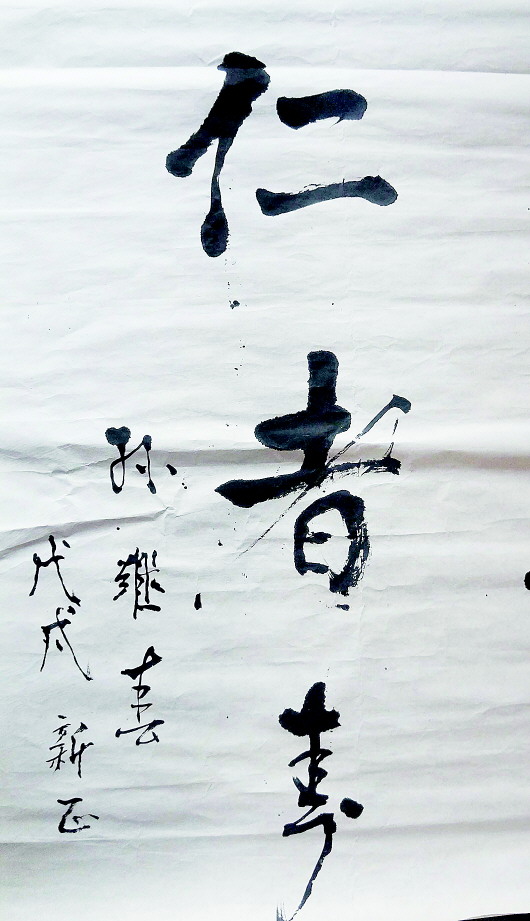 仁者寿
孙继喜
戊戌新正